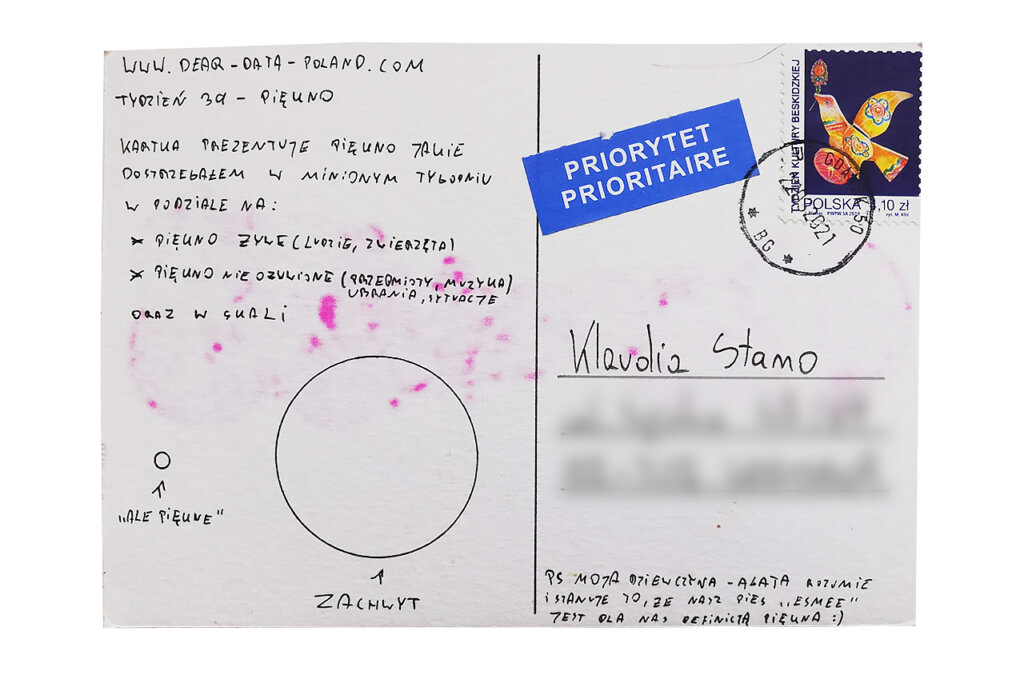 WWW.DEAR-DATA-POLAND.COM
TYDZIEŃ 39 - PIĘKNO
KARTKA PREZENTUJE PIĘKNO JAKIE
DOSTRZEGAŁEM W MINIONYM TYGODNIU
W PODZIALE NA:
* PIĘKNO ŻYWE (LUDZIE, ZWIERZĘTA)
* PIĘKNO NIE OŻYWIONE (PRZEDMIOTY, MUZYKA)
UBRANIA, SYTUACJE
ORAZ W SKALI
„ALE PIĘKNE"
ZACHWYT
PRIORYTET
PRIORITAIRE
TYDZIEŃ KULTURY BESKIDZKIEJ
POLSKA 4,10 zł
PWPW SA
2021
* BG *
Klaudia Stamo
PS MOJA DZIEWCZYNA - AGATA ROZUMIE
I STANUJE TO, ŻE NASZ PIES „ESMEE"
JEST DLA NAS DEFINICJĄ PIĘKNA :)